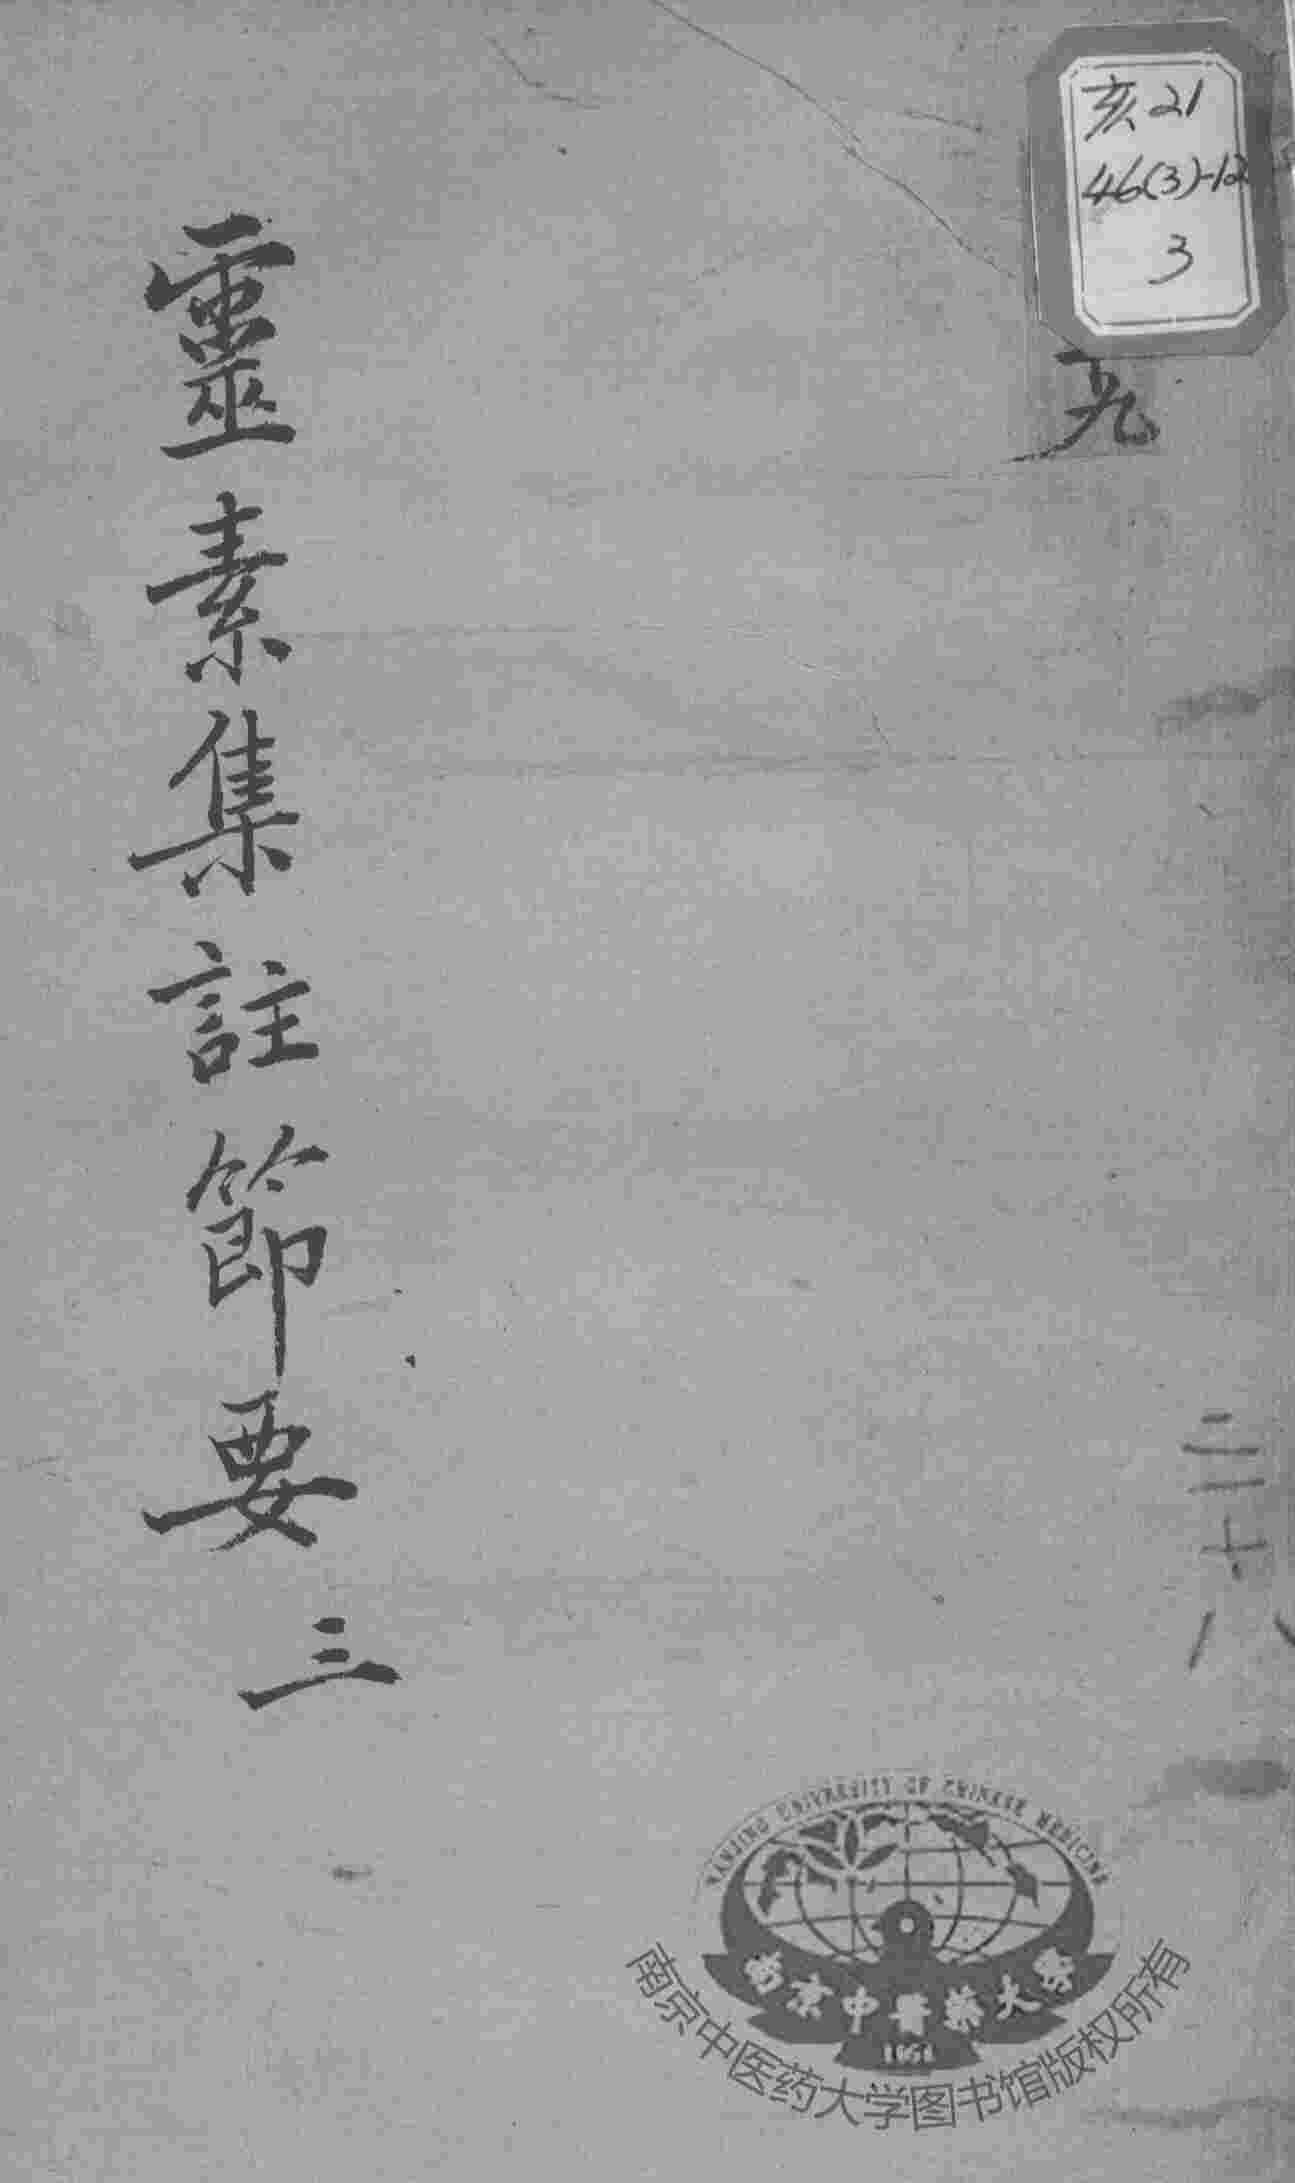 亥21
46(3)-12
3
靈素集註節要 三
二二十八
NANJING UNIVERSITY OF CHINESE MEDICINE
南京中醫藥大學
南京中医药大学图书馆版权所有